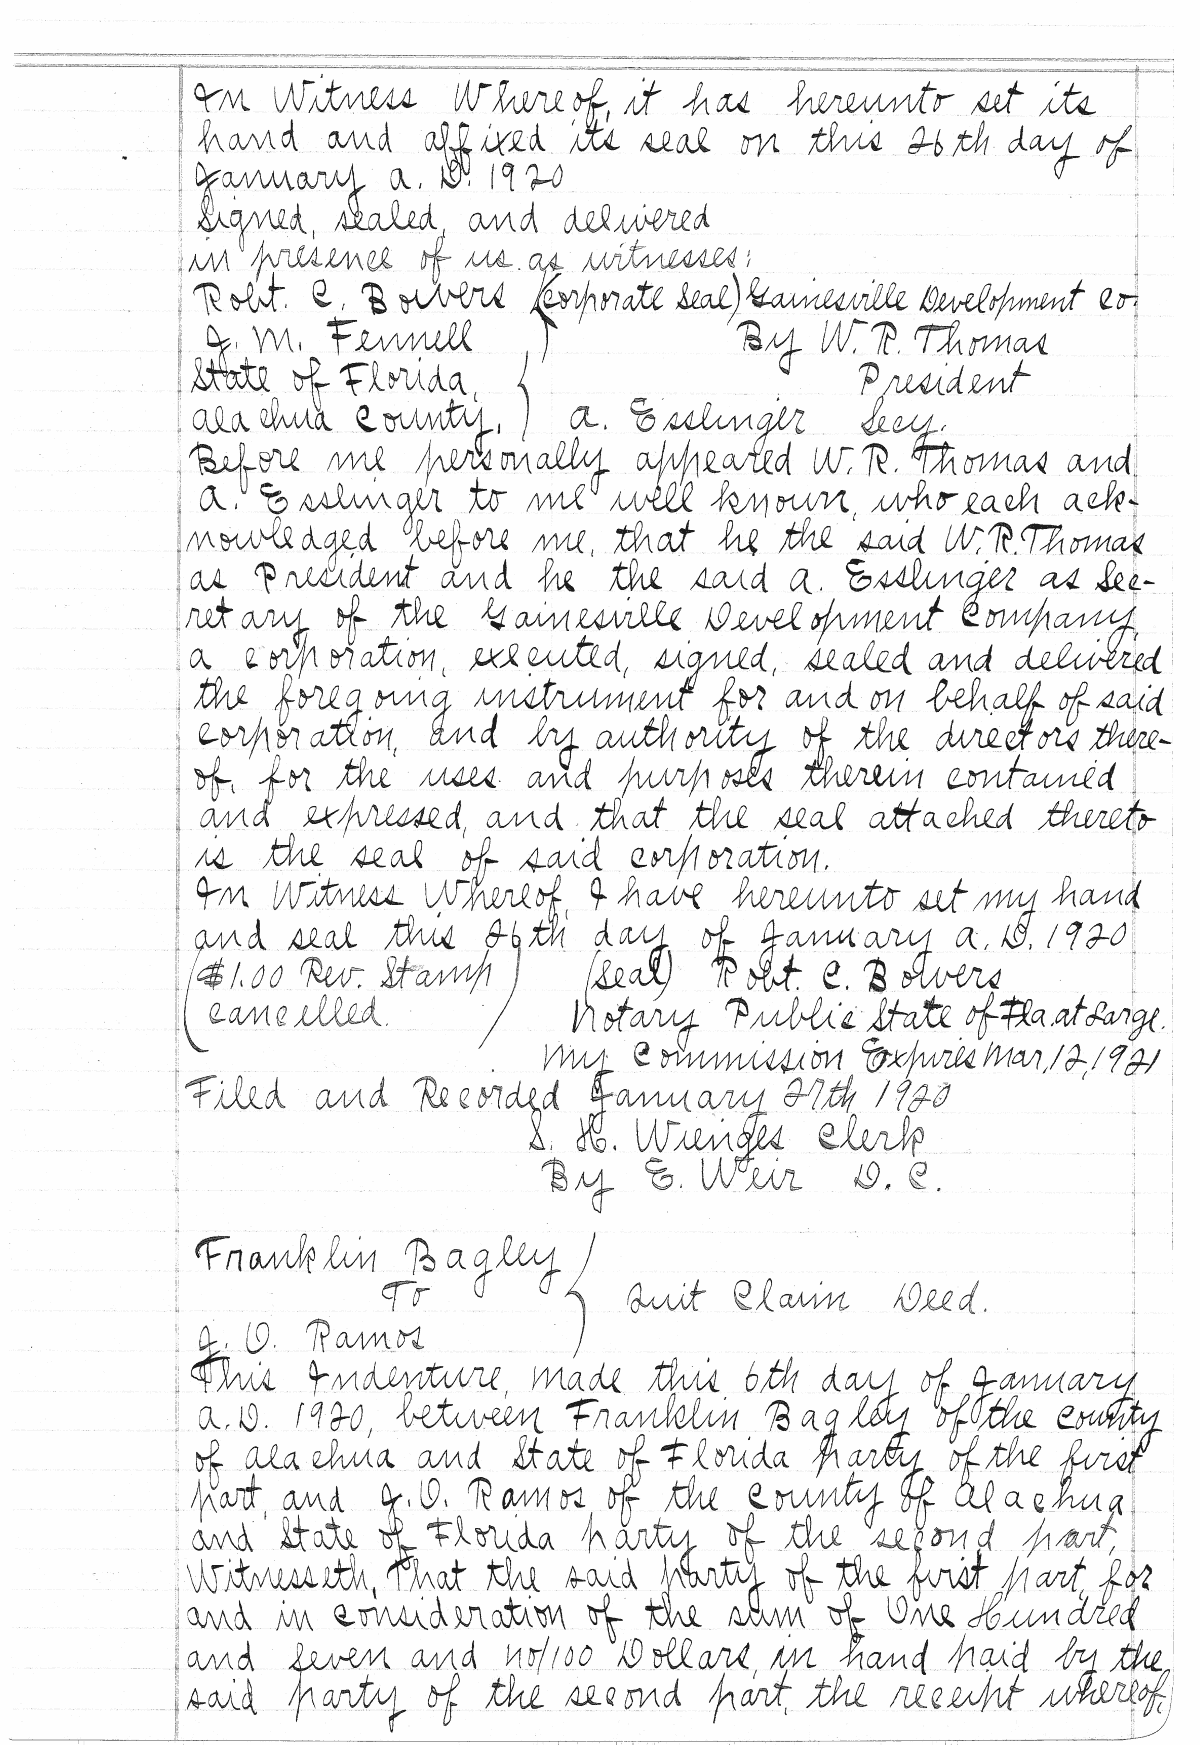 In Witness Whereof, it has hereunto set its
hand and affixed its seal on this 26th day of
January A. D. 1920
Signed, sealed, and delivered
in presence of us as witnesses:
Robt. C. Bowers (Corporate Seal) Gainesville Development Co.
J. M. Fennell ) By W. R. Thomas
State of Florida, } President
Alachua County. A. Esslinger Secy.
Before me personally appeared W. R. Thomas and
A. Esslinger to me well known, who each ack-
nowledged before me, that he the said W. R. Thomas
as President and he the said A. Esslinger as Sec-
retary of the Gainesville Development Company,
a corporation, executed, signed, sealed and delivered
the foregoing instrument for and on behalf of said
corporation, and by authority of the directors there-
of, for the uses and purposes therein contained
and expressed, and that the seal attached thereto
is the seal of said corporation.
In Witness Whereof, I have hereunto set my hand
and seal this 26th day of January A. D. 1920
($1.00 Rev. Stamp ) (Seal) Robt. C. Bowers
cancelled. Notary Public State of Fla. at Large.
My Commission Expires Mar, 12, 1921
Filed and Recorded January 27th 1920
S. H. Wienges Clerk
By E. Weir D. C.
Franklin Bagley
To } Quit Claim Deed.
J. O. Ramos
This Indenture, made this 6th day of January
A. D. 1920, between Franklin Bagley of the County
of Alachua and State of Florida party of the first
part, and J. O. Ramos of the County of Alachua
and State of Florida party of the second part,
Witnesseth, That the said party of the first part, for
and in consideration of the sum of One Hundred
and Seven and no/100 Dollars, in hand paid by the
said party of the second part, the receipt whereof,